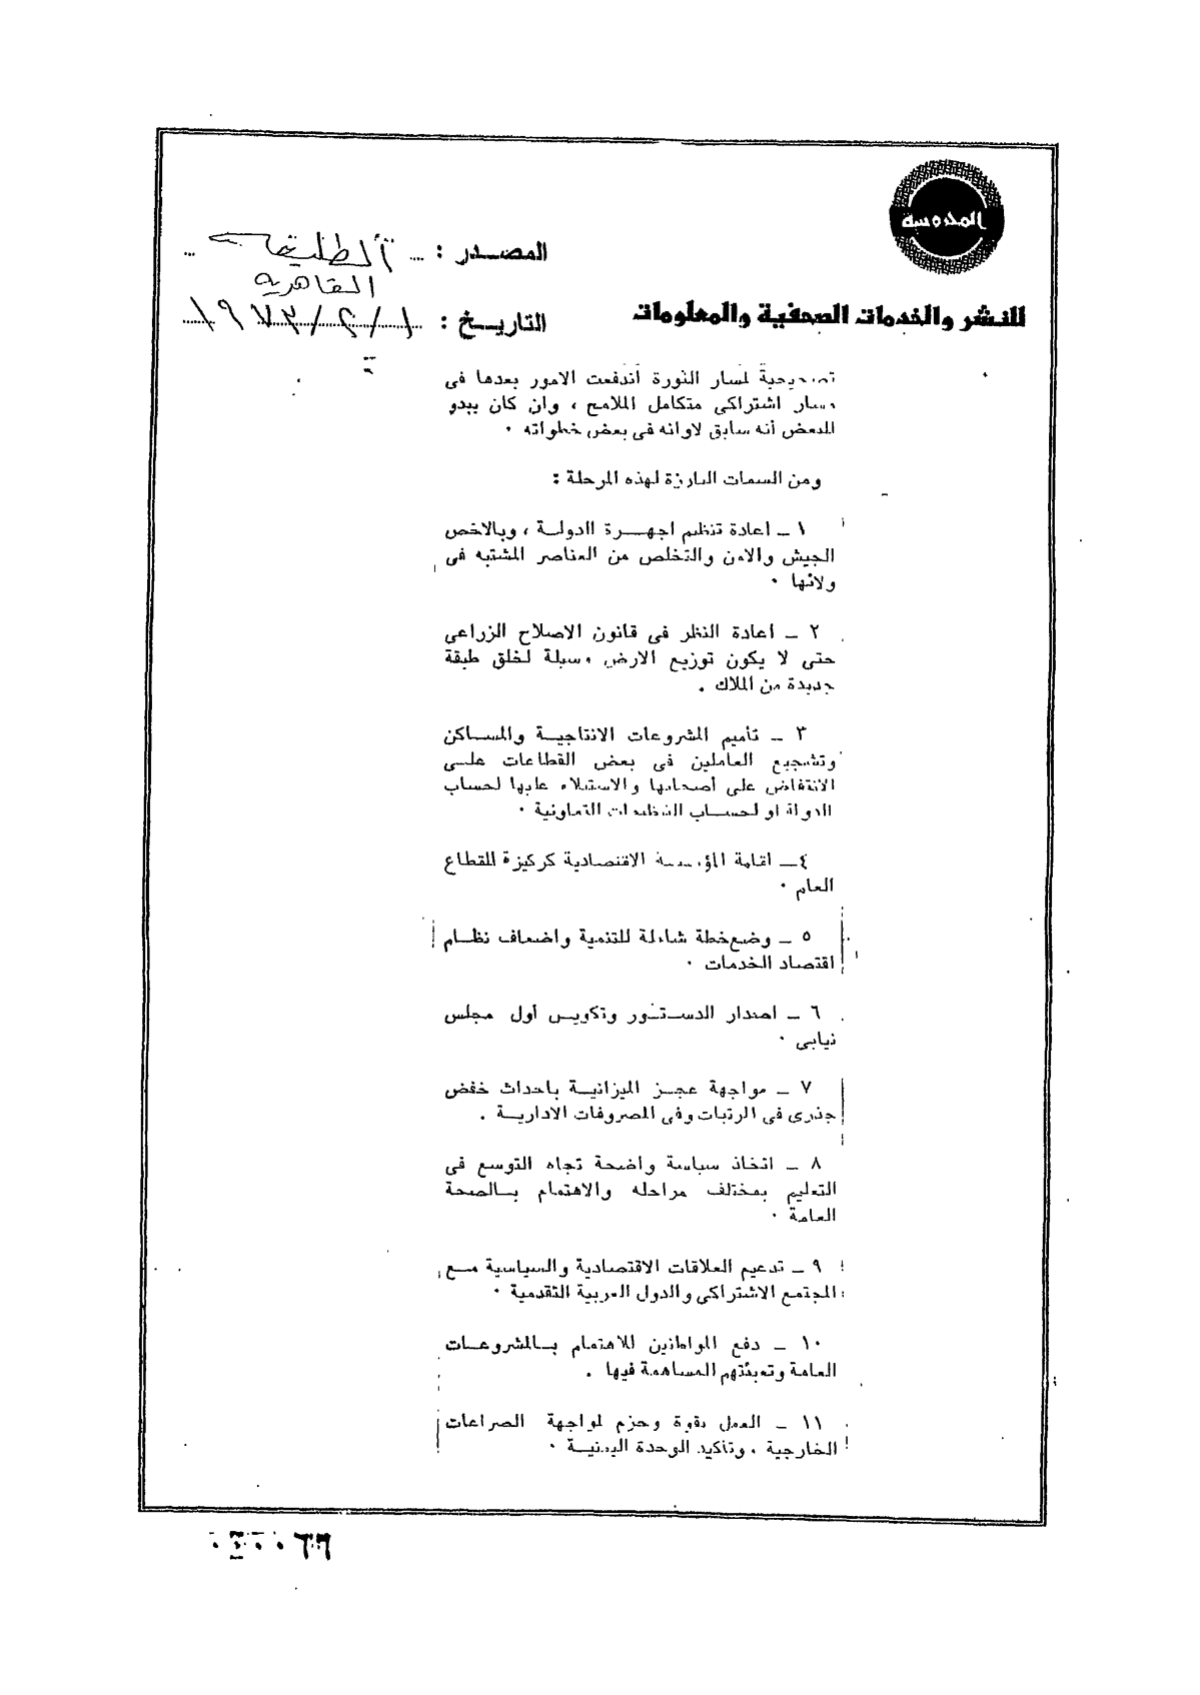 المحروسة
المصدر : الطليعة
القاهرية
للنشر والخدمات الصحفية والمعلومات
التاريخ : ١ / ٢ / ١٩٧٣
تصحيحية لمسار الثورة أندفعت الامور بعدها فى
مسار اشتراكى متكامل الملامح ، وان كان يبدو
للبعض أنه سابق لاوانه فى بعض خطواته ٠
ومن السمات البارزة لهذه المرحلة :
١ ــ اعادة تنظيم اجهــرة الدولــة ، وبالاخص
الجيش والامن والتخلص من العناصر المشتبه فى
ولائها ٠
٢ ــ اعادة النظر فى قانون الاصلاح الزراعى
حتى لا يكون توزيع الارض وسيلة لخلق طبقة
جديدة من الملاك .
٣ ــ تأميم المشروعات الانتاجيــة والمســاكن
وتشجيع العاملين فى بعض القطاعات علــى
الانتفاض على أصحابها والاستيلاء عليها لحساب
الدولة او لحســاب التنظيمات التعاونية ٠
٤ــ اقامة المؤسسة الاقتصادية كركيزة للقطاع
العام ٠
٥ ــ وضع خطة شاملة للتنمية واضعاف نظــام
اقتصاد الخدمات ٠
٦ ــ اصدار الدســتور وتكويــن أول مجلس
نيابى ٠
٧ ــ مواجهة عجــز الميزانيــة باحداث خفض
جذرى فى الرتبات وفى المصروفات الاداريــة .
٨ ــ اتخاذ سياسة واضحة تجاه التوسع فى
التعليم بمختلف مراحله والاهتمام بــالصحة
العامة ٠
٩ ــ تدعيم العلاقات الاقتصادية والسياسية مــع
المجتمع الاشتراكى والدول العربية التقدمية ٠
١٠ ــ دفع المواطنين للاهتمام بــالمشروعــات
العامة وتعبئتهم للمساهمة فيها .
١١ ــ العمل بقوة وحزم لمواجهة الصراعات
الخارجية ، وتأكيد الوحدة اليمنيــة ٠